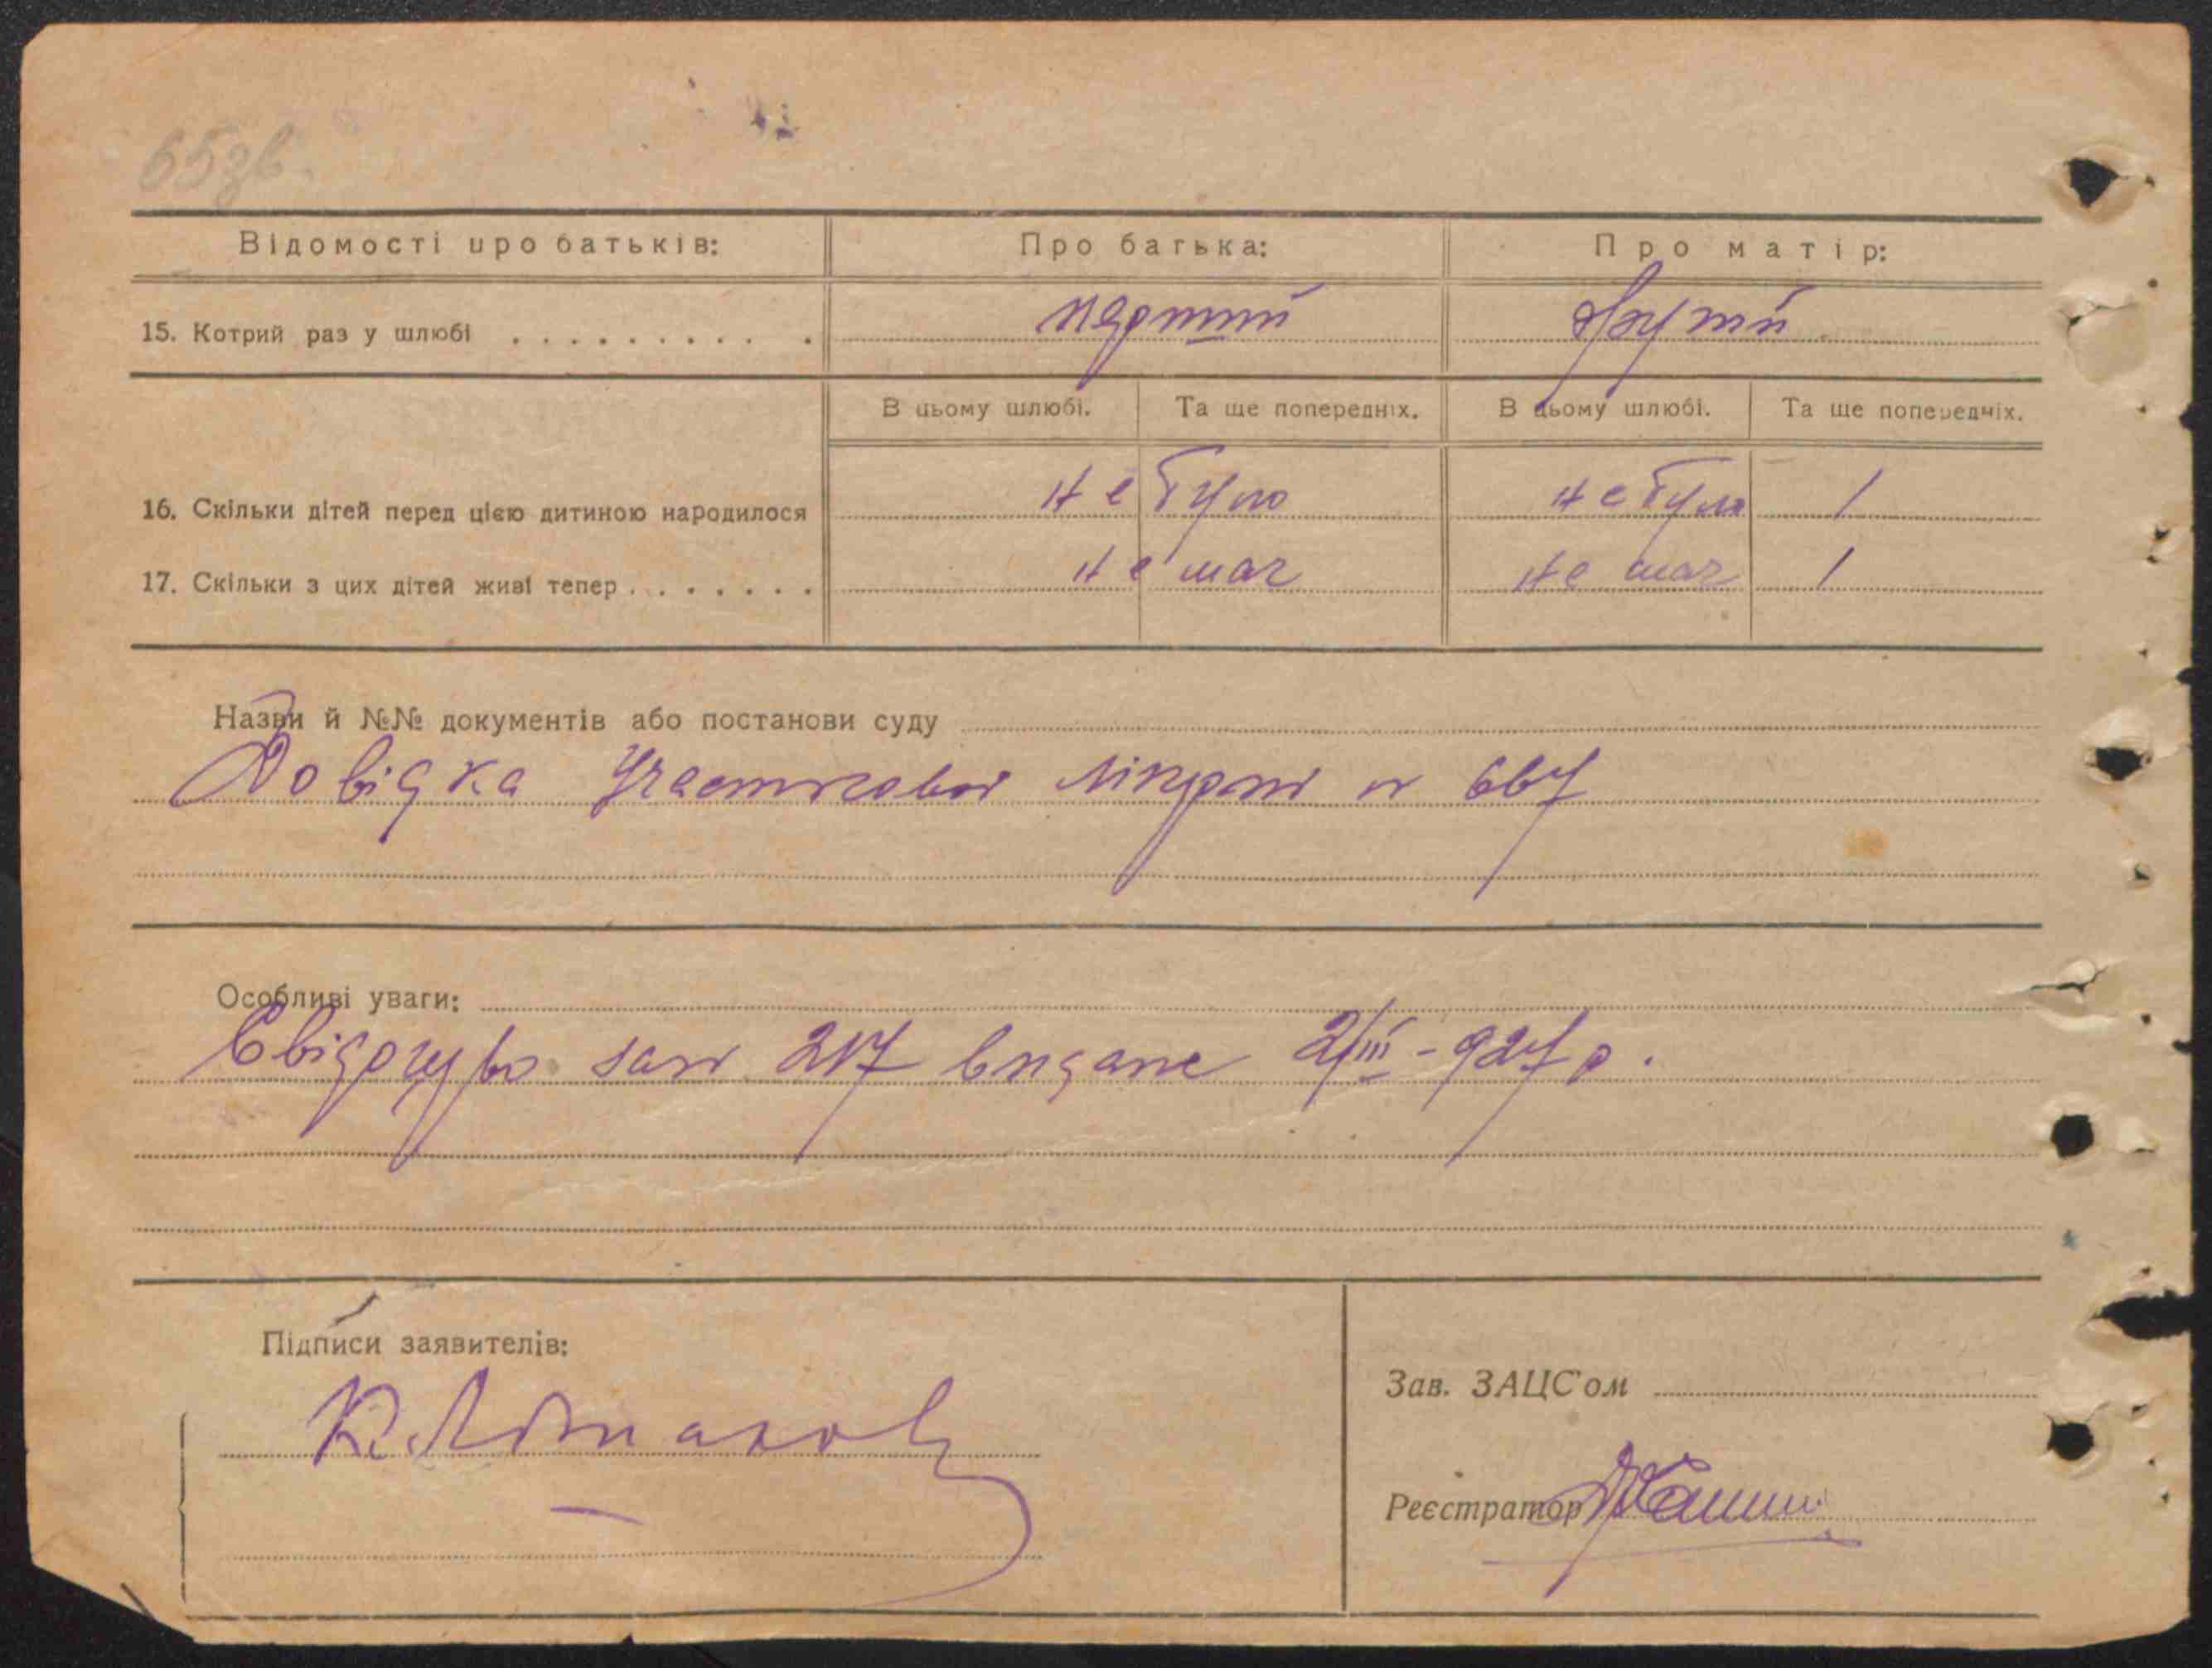 65зв.
Відомості про батьків: Про батька: Про матір:
15. Котрий раз у шлюбі . . . . . . . . . . перший другий
В цьому шлюбі. Та ще попередніх. В цьому шлюбі. Та ще попередніх.
16. Скільки дітей перед цією дитиною народилося не було не було 1
17. Скільки з цих дітей живі тепер . . . . . . . не має не має 1
Назви й №№ документів або постанови суду
Довідка Участкової лікарні
Особливі уваги:
Свідоцтво за № 217 видане 2/III-927 р.
Підписи заявителів:
Зав. ЗАЦС'ом
Реєстратор